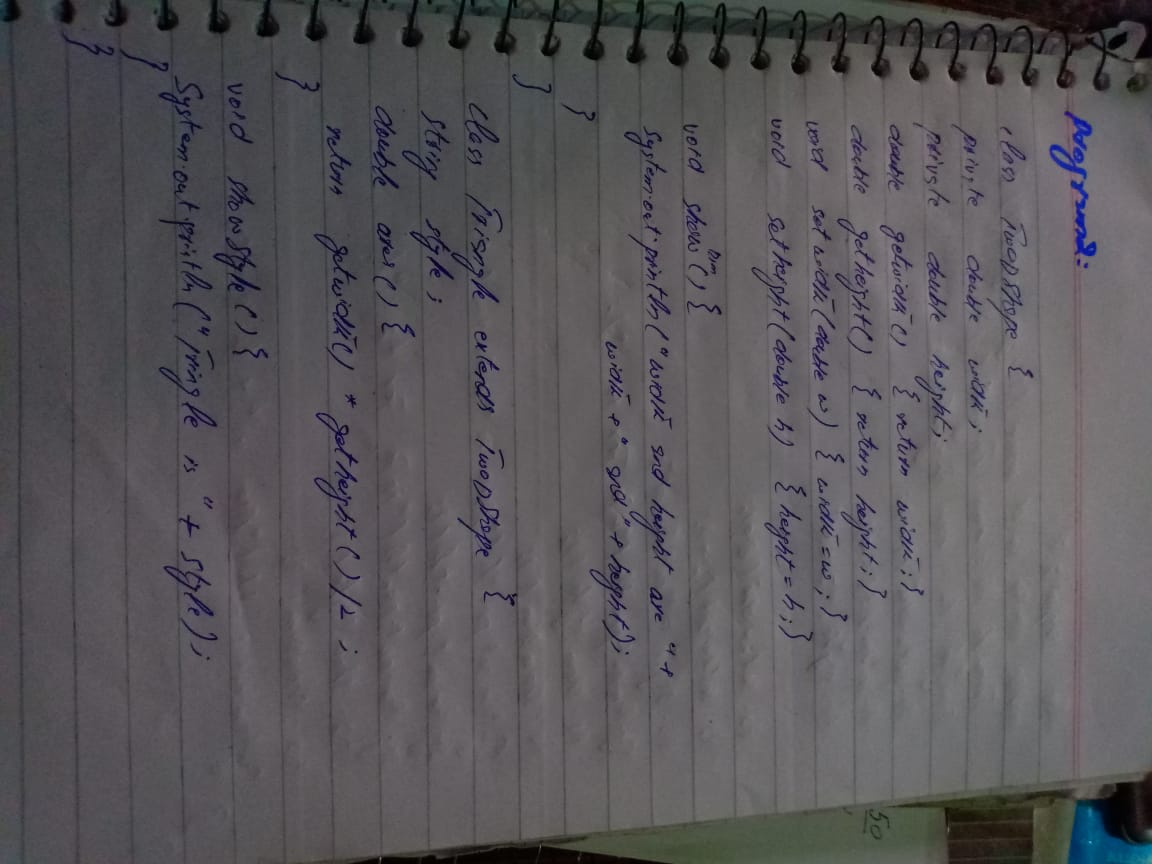 Program:
class TwoDShape {
private double width;
private double height;
double getwidth() { return width; }
double getheight() { return height; }
void setwidth(double w) { width = w; }
void setheight(double h) { height = h; }
void showDim() {
System.out.println("width and height are " +
width + " and " + height);
}
}
class Triangle extends TwoDShape {
String style;
double area() {
return getwidth() * getheight() / 2;
}
void showstyle() {
System.out.println("Triangle is " + style);
}
}
50